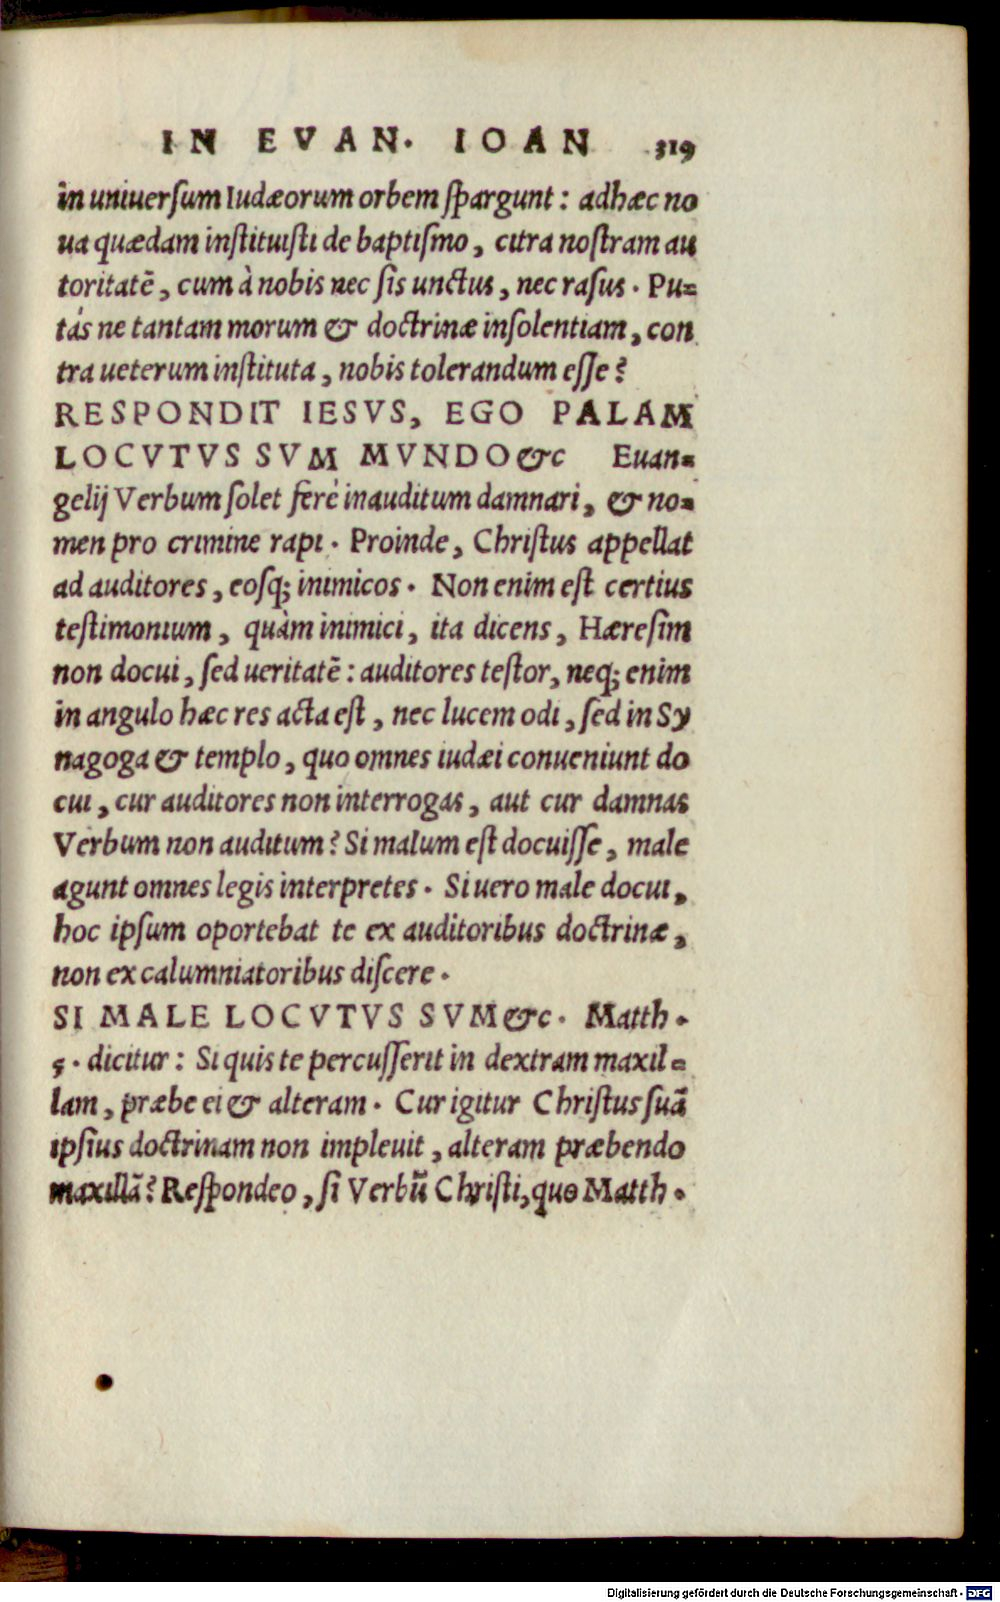 IN EVAN. IOAN 319
in uniuersum Iudæorum orbem spargunt: adhæc no
ua quædam instituisti de baptismo, citra nostram au
toritatē, cum à nobis nec sis unctus, nec rasus. Pu-
tás ne tantam morum & doctrinæ insolentiam, con
tra ueterum instituta, nobis tolerandum esse?
RESPONDIT IESVS, EGO PALAM
LOCVTVS SVM MVNDO &c Euan-
gelij Verbum solet ferè inauditum damnari, & no-
men pro crimine rapi. Proinde, Christus appellat
ad auditores, eosq; inimicos. Non enim est certius
testimonium, quàm inimici, ita dicens, Hæresim
non docui, sed ueritatē: auditores testor, neq; enim
in angulo hæc res acta est, nec lucem odi, sed in Sy
nagoga & templo, quo omnes iudæi conueniunt do
cui, cur auditores non interrogas, aut cur damnas
Verbum non auditum? Si malum est docuisse, male
agunt omnes legis interpretes. Si uero male docui,
hoc ipsum oportebat te ex auditoribus doctrinæ,
non ex calumniatoribus discere.
SI MALE LOCVTVS SVM &c. Matth.
5. dicitur: Si quis te percusserit in dextram maxil-
lam, præbe ei & alteram. Cur igitur Christus suā
ipsius doctrinam non impleuit, alteram præbendo
maxillā? Respondeo, si Verbū Christi, quo Matth.
Digitalisierung gefördert durch die Deutsche Forschungsgemeinschaft - DFG